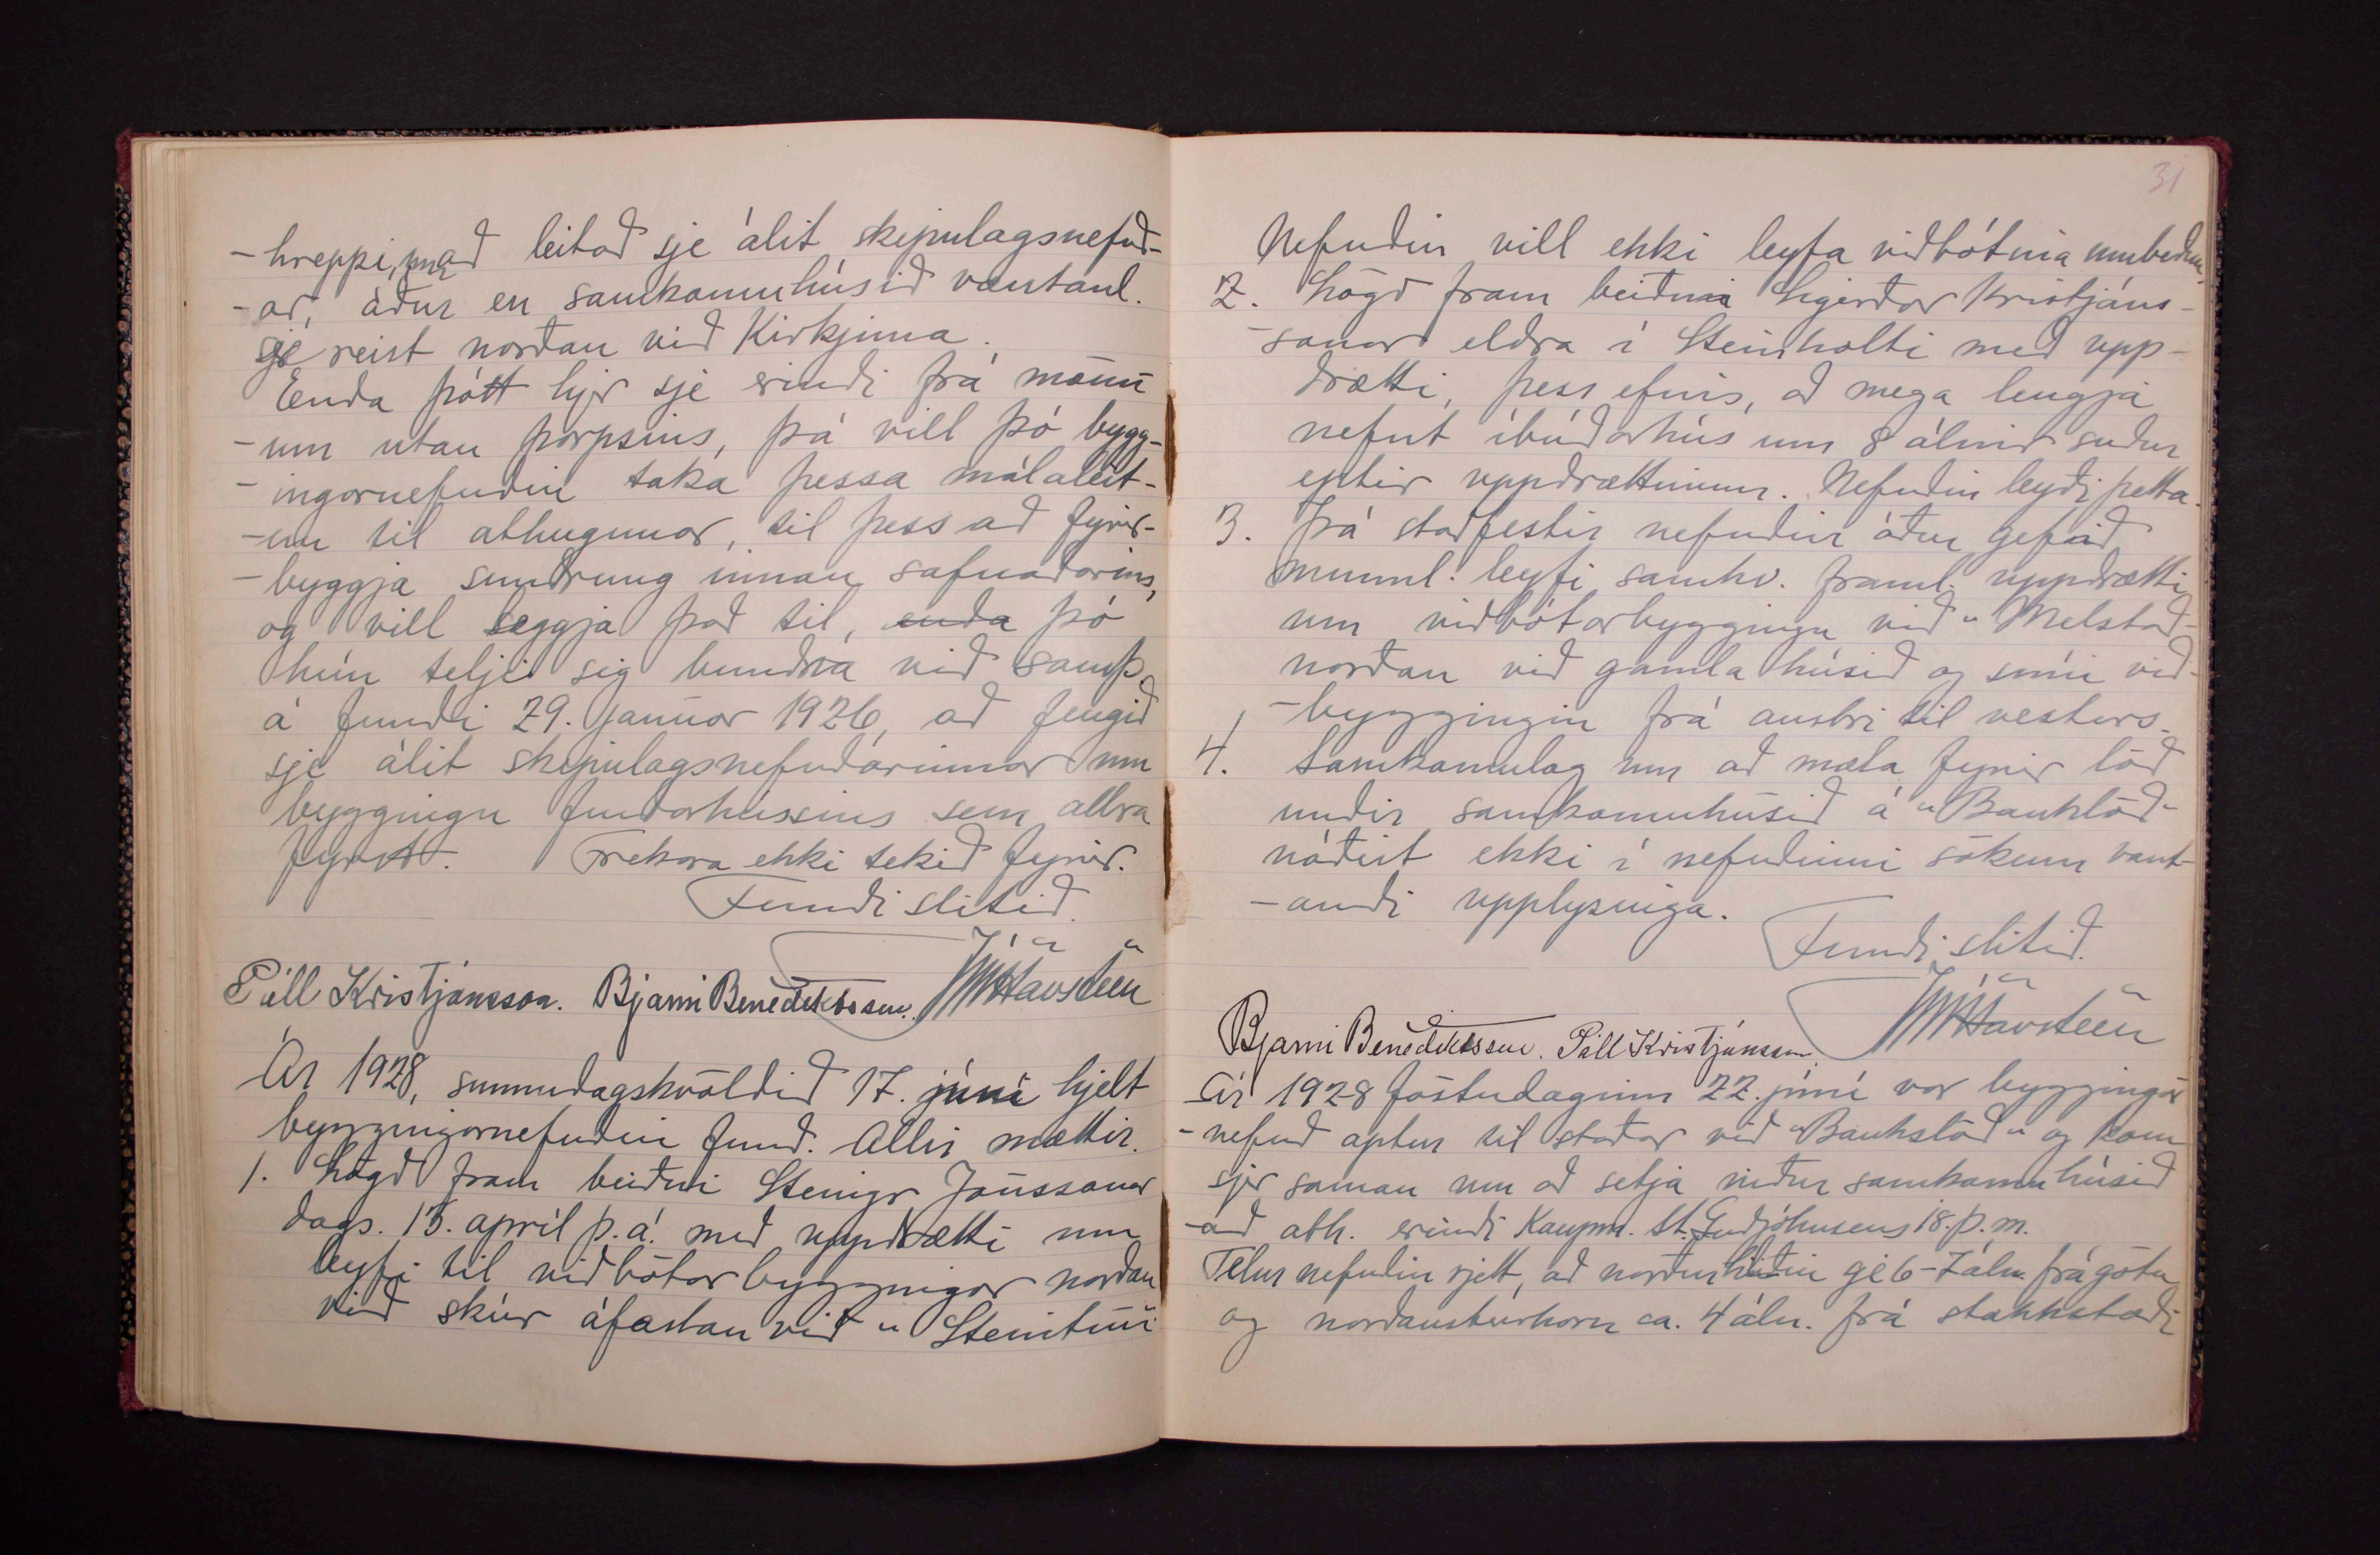 -hreppi, um að leitað sje álit skipulagsnefnd-
-ar, áður en samkomuhúsið væntanl.
sje reist norðan við Kirkjuna.
Enda þótt hjer sje erindi frá mönn
-um utan þorpsins, þá vill þó bygg-
-ingarnefndin taka þessa málaleit-
-un til athugunar, til þess að fyrir-
-byggja sundrung innan safnaðarins,
og vill leggja það til, enda þó
hún telji sig bundna við samþ.
á fundi 29. janúar 1926, að fengið
sje álit skipulagsnefndarinnar um
byggingu fundarhússins sem allra
fyrst. Frekara ekki tekið fyrir.
Fundi slitið.
Páll Kristjánsson. Bjarni Benediktsson. JúlHavsteen
Ár 1928, sunnudagskvöldið 17. júní hjelt
byggingarnefndin fund. Allir mættir.
1. Lögð fram beiðni Steingr Jónssonar
dags. 15. apríl þ.á. með uppdrætti um
leyfi til viðbótarbyggingar norðan
við skúr áfastan við "Steintún
31
Nefndin vill ekki leyfa viðbótina umbeðnu.
2. Lögð fram beiðni Sigurðar Kristjáns-
-sonar eldra í Steinholti með upp-
drætti, þess efnis, að mega lengja
nefnt íbúðarhús um 8 álnir suður
eptir uppdrættinum. Nefndin leyfði þetta.
3. Þá staðfestir nefndin áður gefið
munnl. leyfi samkv. framl. uppdrætti
um viðbótarbyggingu við "Melstað"
norðan við gamla húsið og snúi við-
-byggingin frá austri til vesturs.
4. Samkomulag um að mæla fyrir lóð
undir samkomuhúsið á "Bauklóð"
náðist ekki í nefndinni sökum vant-
-andi upplysinga.
Fundi slitið.
JúlHavsteen
Bjarni Benediktsson. Páll Kristjánsson
Ár 1928 föstudaginn 22. júní var byggingar
-nefnd aptur til staðar við "Baukslóð" og kom
sjer saman um að setja niður samkomuhúsið
að ath. erindi Kaupm. St. Guðjóhnsens 18. þ.m.
Telur nefndin rjett, að norðurhliðin sje 6-7 áln. frá götu
og norðausturhorn ca. 4 áln. frá stakkstæði